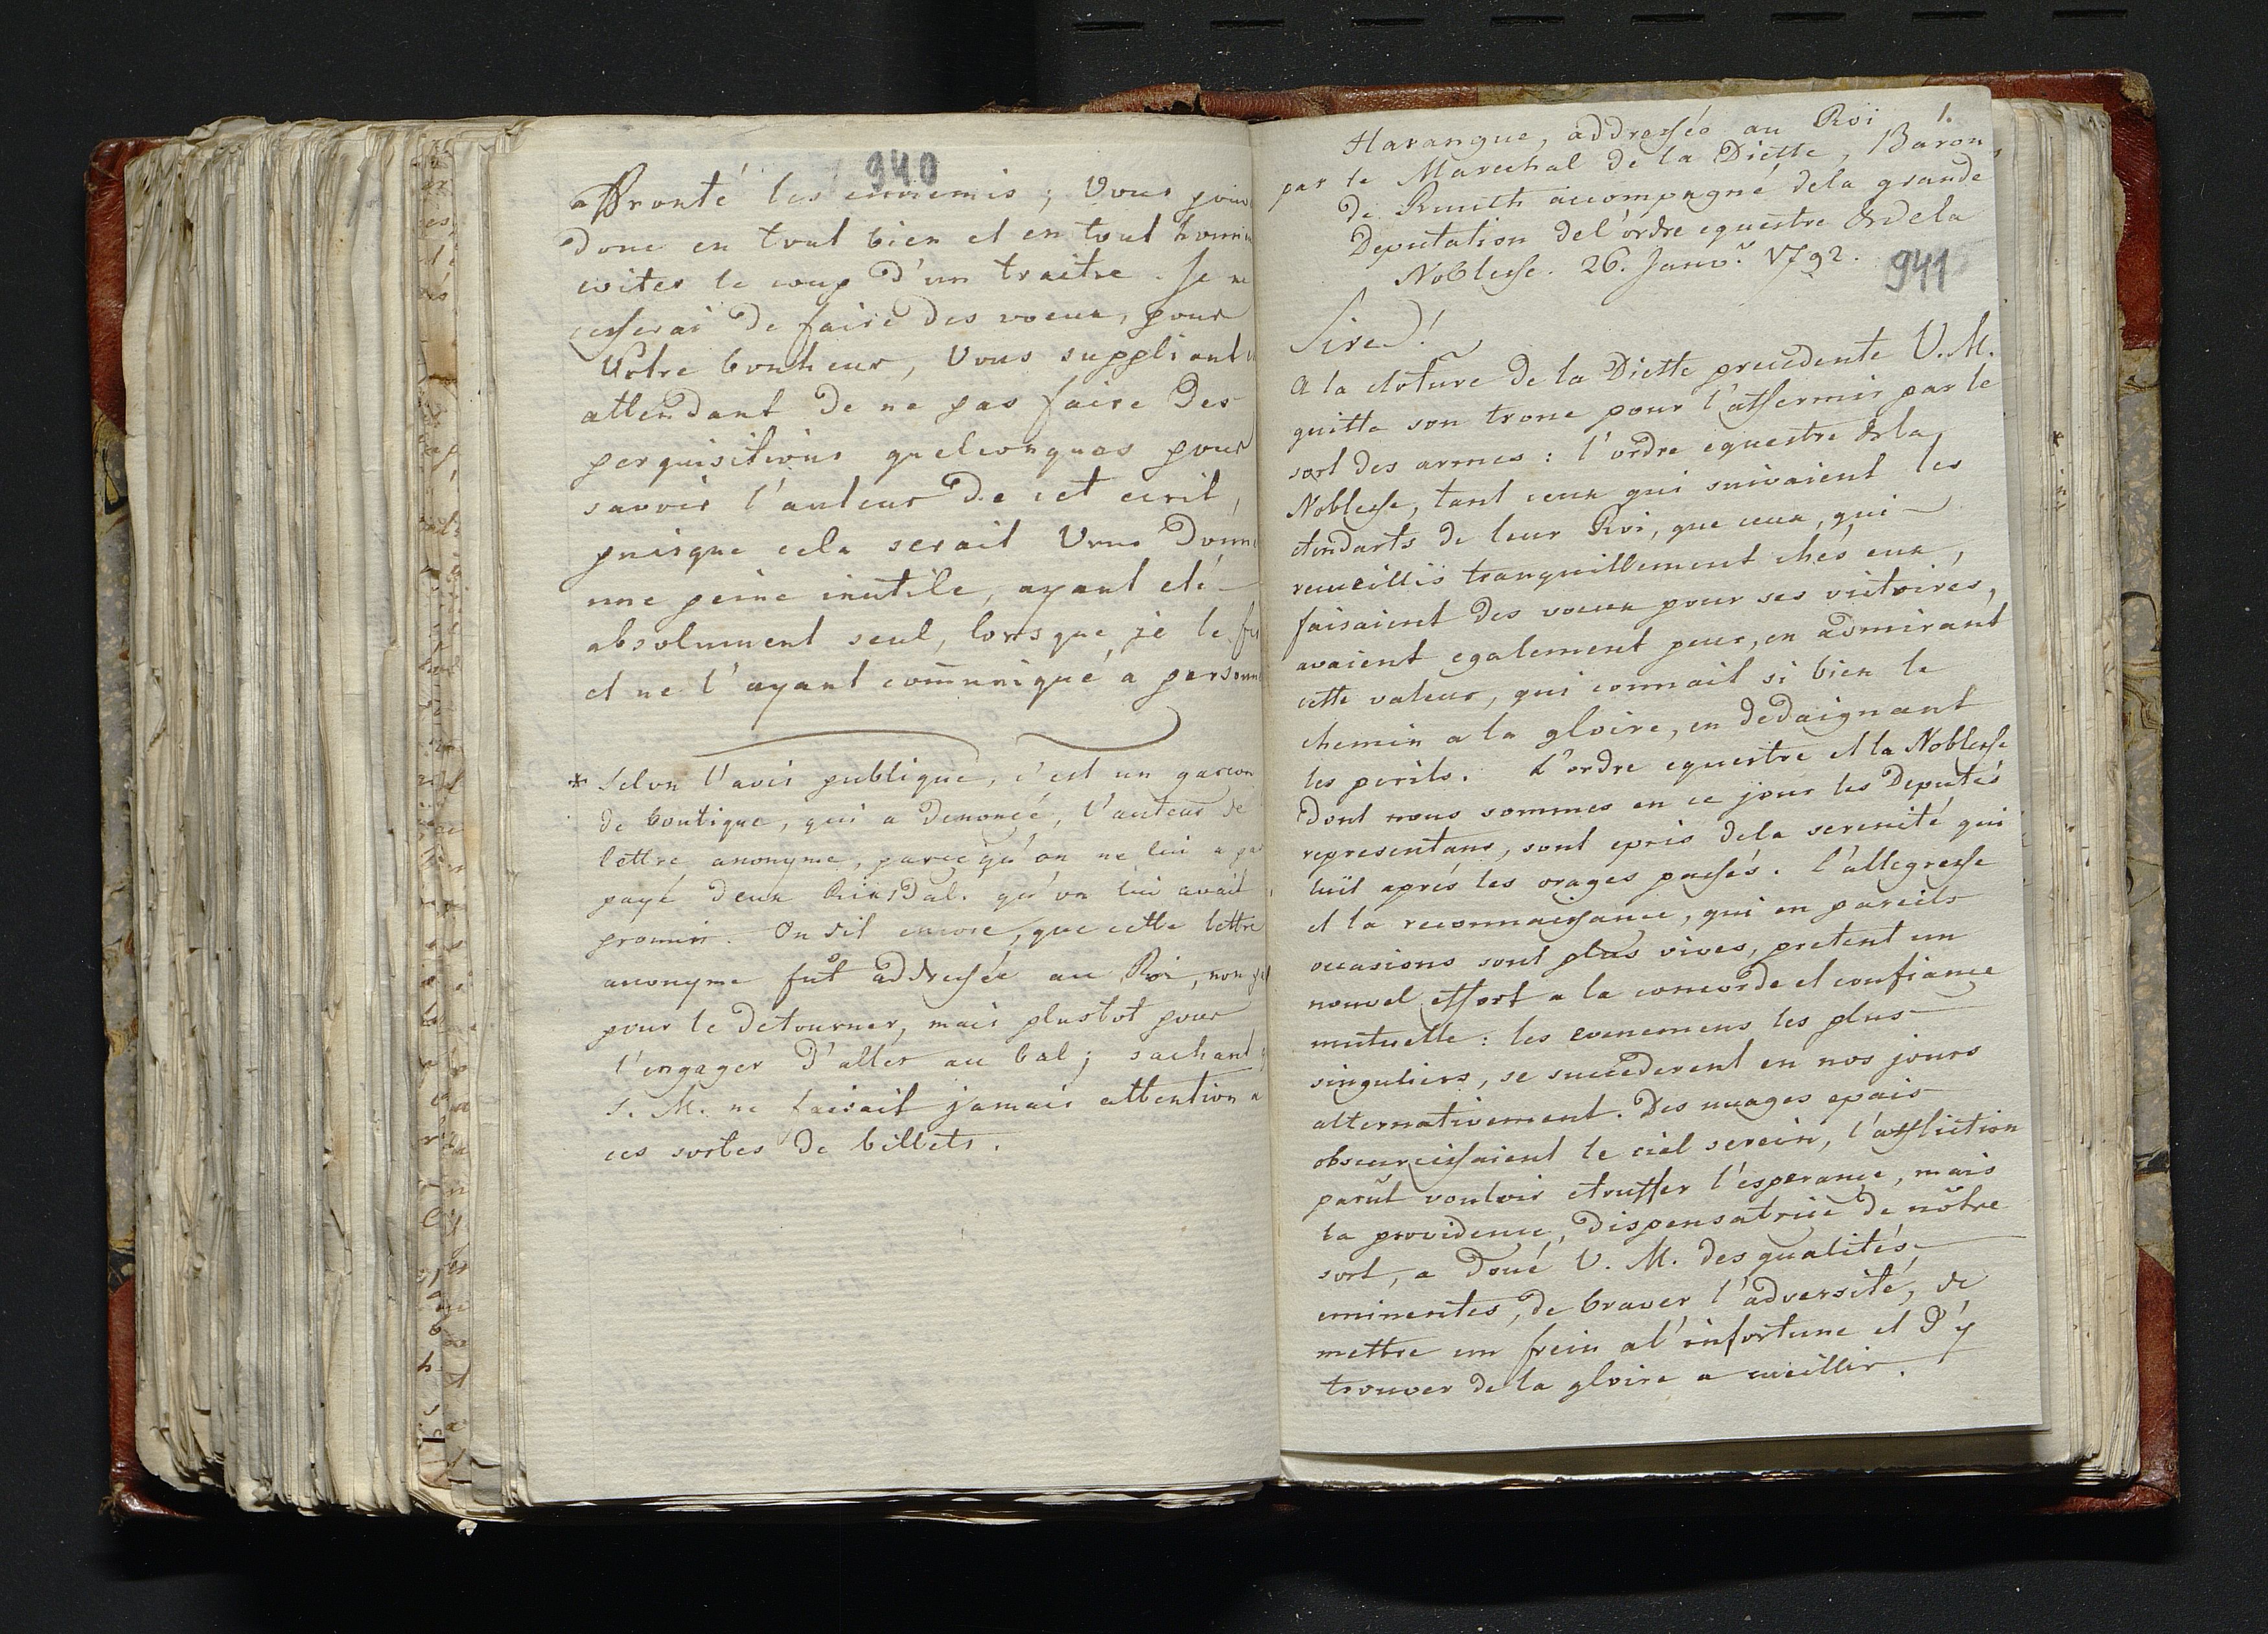 940
affronté les ennemis; Vous
donc en tout bien et en tout
eviter le coup d'un traitre. Je ne
cesserai de faire des voeux, pour
Votre bonheur, Vous suppliant
attendant de ne pas faire des
perquisitions quelconques pour
savoir l'auteur de cet ecrit,
puisque cela serait Vous
une peine inutile, ayant eté
absolument seul, lorsque je le fis
et ne l'ayant communiqué a
* Selon l'avis publique, c'est un garcon
de boutique, qui a denoncé, l'auteur de
lettre anonyme, parce qu'on ne lui a pas
payé deux Rixdal. qu'on lui avait
promis. On dit encore, que cette lettre
anonyme fut addressée au Roi, non
pour le detourner, mais plustot pour
l'engager d'aller au bal; sachant
S. M. ne faisait jamais attention a
ces sortes de billets.
Harangue, addressée au Roi 1.
par le Marechal de la Diette, Baron
de Ruuth accompagné dela grande
Deputation del'ordre equestre & dela
Noblesse. 26. Janvr. 1792.
941
Sire!
A la cloture de la Diette precedente V. M.
quitta son trone pour l'affermir par le
sort des armes: l'ordre equestre & la
Noblesse, tant ceux qui suivaient les
etendarts de leur Roi, que ceux, qui
recueillis tranquillement chés eux,
faisaient des voeux pour ses victoires,
avaient egalement peur, en admirant
cette valeur, qui connait si bien le
chemin a la gloire, en dedaignant
les perils. L'ordre equestre et la Noblesse
dont nous sommes en ce jour les Deputés
representans, sont epris dela serenité qui
luit aprés les orages passés. l'allegresse
et la reconnaissance, qui en pareils
occasions sont plus vives, pretent un
nouvel effort a la concorde et confiance
mutuelle: les evenemens les plus
singuliers, se succederent en nos jours
alternativement. Des nuages epais
obscurcissaient le ciel serein, l'affliction
parut vouloir etouffer l'esperance, mais
la providence, dispensatrice de nôtre
sort, a doué V. M. des qualités
eminentes, de braver l'adversité, de
mettre un frein al'infortune et d'y
trouver dela gloire a cueillir.